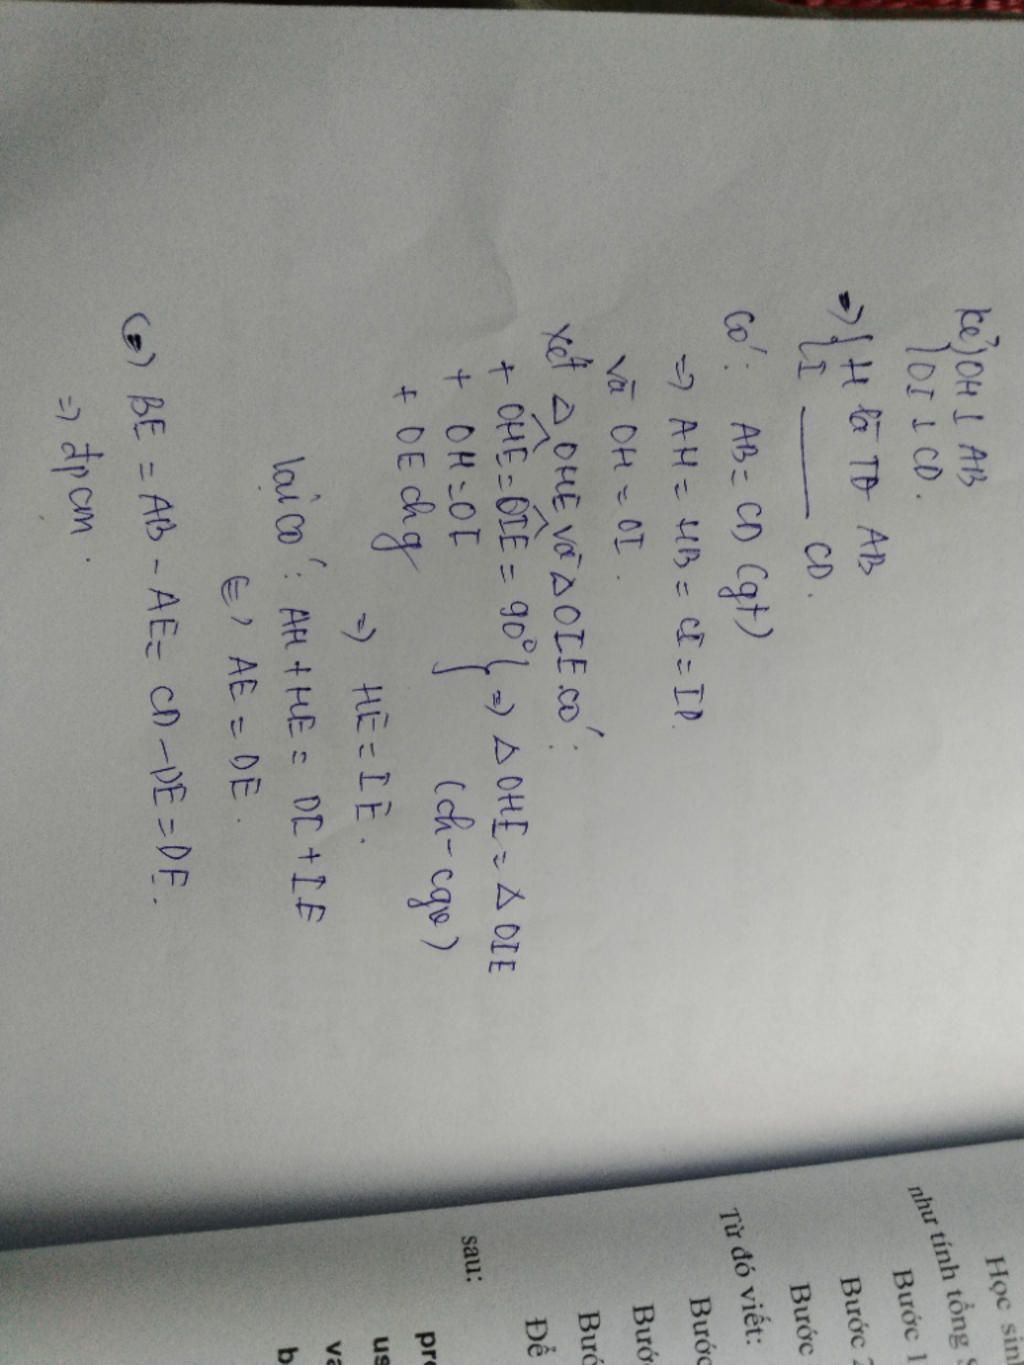 Kẻ { OH ⊥ AB
OI ⊥ CD.
=> { H là TĐ AB
I ——— CD.
Có: AB = CD (gt)
=> AH = HB = CI = ID.
và OH = OI.
Xét Δ OHE và Δ OIE có:
+ OHE = OIE = 90° } => Δ OHE = Δ OIE
+ OH = OI (ch-cgv)
+ OE chg
=> HE = IE.
lại có: AH + HE = DI + IE
(=) AE = DE.
(=) BE = AB - AE = CD - DE = DE.
=> đpcm.
Học sin
như tính tổng
Bước 1
Bước 2
Bước
Từ đó viết:
Bước
Bước
Bướ
Để
sau:
pro
us
va
b